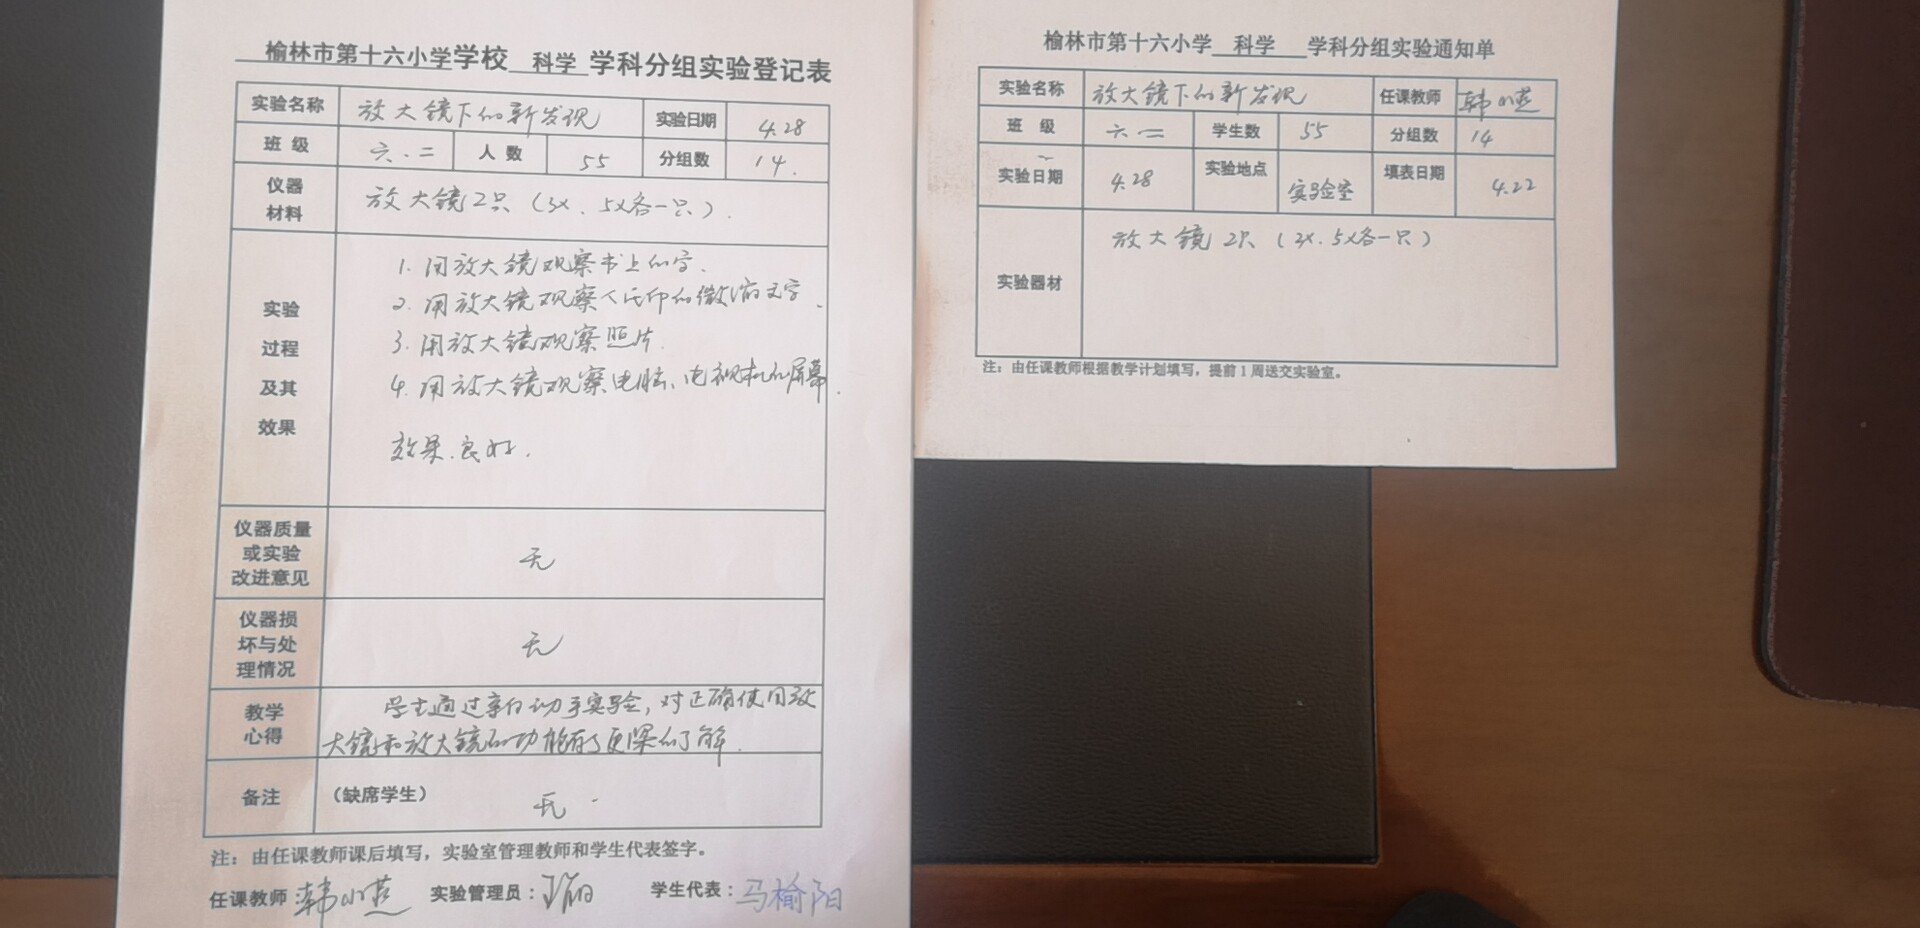 榆林市第十六小学学校 科学 学科分组实验登记表
实验名称 放大镜下的新发现 实验日期 4.28
班 级 六.二 人 数 55 分组数 14.
仪器
材料
放大镜2只(3x、5x各一只).
实验
过程
及其
效果
1. 用放大镜观察书上的字.
2. 用放大镜观察人民币的微缩文字.
3. 用放大镜观察照片.
4. 用放大镜观察电脑、电视机的屏幕.
效果.良好.
仪器质量
或实验
改进意见
无
仪器损
坏与处
理情况
无
教学
心得
学生通过亲自动手实验,对正确使用放
大镜和放大镜的功能有了更深的了解.
备注 (缺席学生) 无.
注：由任课教师课后填写，实验室管理教师和学生代表签字。
任课教师：韩小燕 实验管理员： 学生代表：马榆阳
榆林市第十六小学 科学 学科分组实验通知单
实验名称 放大镜下的新发现 任课教师 韩小燕
班 级 六.二 学生数 55 分组数 14
实验日期 4.28 实验地点 实验室 填表日期 4.22
实验器材
放大镜2只(3x.5x各一只)
注：由任课教师根据教学计划填写，提前1周送交实验室。